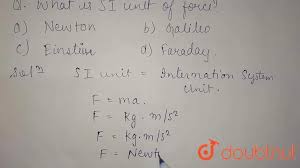 Q. What is SI unit of force?
a) Newton b) Galileo
c) Einstien d) Faraday.
Sol^n SI unit = Internation System
Unit.
F = ma.
F = Kg. m/s²
F = Kg. m/s²
F = Newt
doubtnut